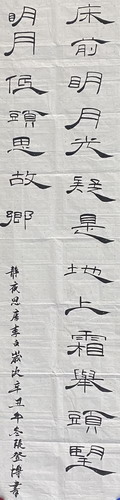 床前明月光疑是地上霜舉頭望
明月低頭思故鄉
靜夜思唐李白歲次辛丑年冬張登博書